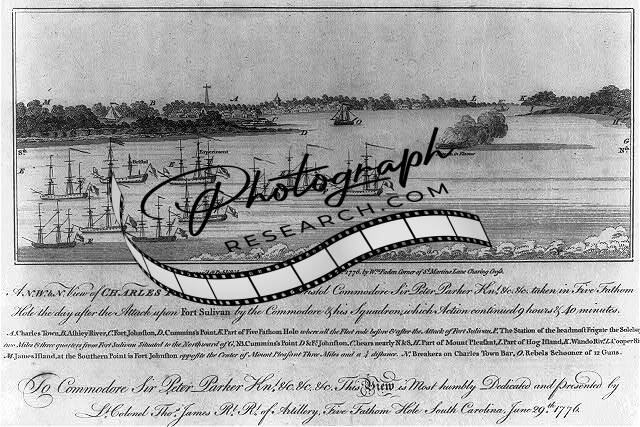 M B A L K
H
O
D
G
Nth
Sth
Bristol Experiment
in Flames
E E
Photograph
RESEARCH.COM
1776, by Wm. Faden Corner of St. Martins Lane Charing Cross.
A N.W.b.N. View of CHARLES Bristol Commodore Sir Peter Parker Knt. &c. &c. &c. taken in Five Fathom
Hole the day after the Attack upon Fort Sulivan by the Commodore & his Squadron, which Action continued 9 hours & 40 minutes.
A. Charles Town, B. Ashley River, C. Fort Johnston, D. Cummins's Point, Æ. Part of Five Fathom Hole where all the Fleet rode before & after the Attack of Fort Sulivan, F. The Station of the headmost Frigate the Solebay
two Miles & three quarters from Fort Sulivan Situated to the Northward of G, NB. Cummins's Point D & Ft. Johnston C, bears nearly N & S, H. Part of Mount Pleasant, I. Part of Hog Island, K. Wando Rivr. L. Cooper Ri
M. James Island, at the Southern Point is Fort Johnston opposite the Center of Mount Pleasant Three Miles and a ½ distance. N. Breakers on Charles Town Bar, O. Rebels Schooner of 12 Guns.
To Commodore Sir Peter Parker Knt. &c. &c. &c. This View is Most humbly Dedicated and Presented by
Lt. Colonel Thos. James Rl. Rt. of Artillery, Five Fathom Hole South Carolina, June 29th 1776.